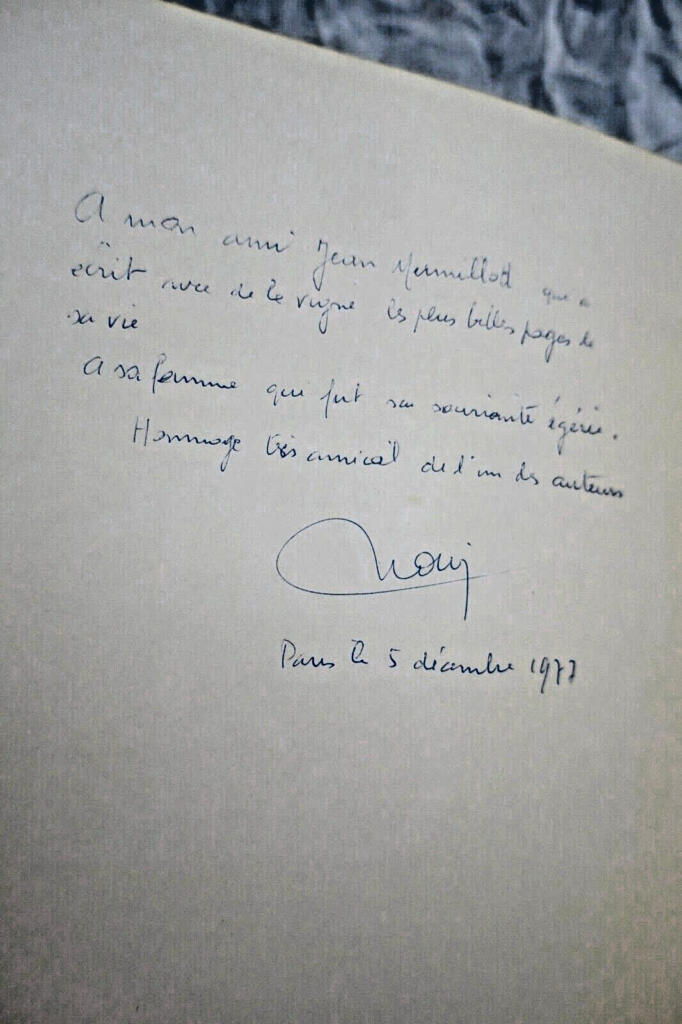 A mon ami Jean Mermillod qui a
écrit avec de la vigne les plus belles pages de
sa vie
A sa femme qui fut sa souriante égérie.
Hommage très amical de l'un des auteurs
Paris le 5 décembre 1977